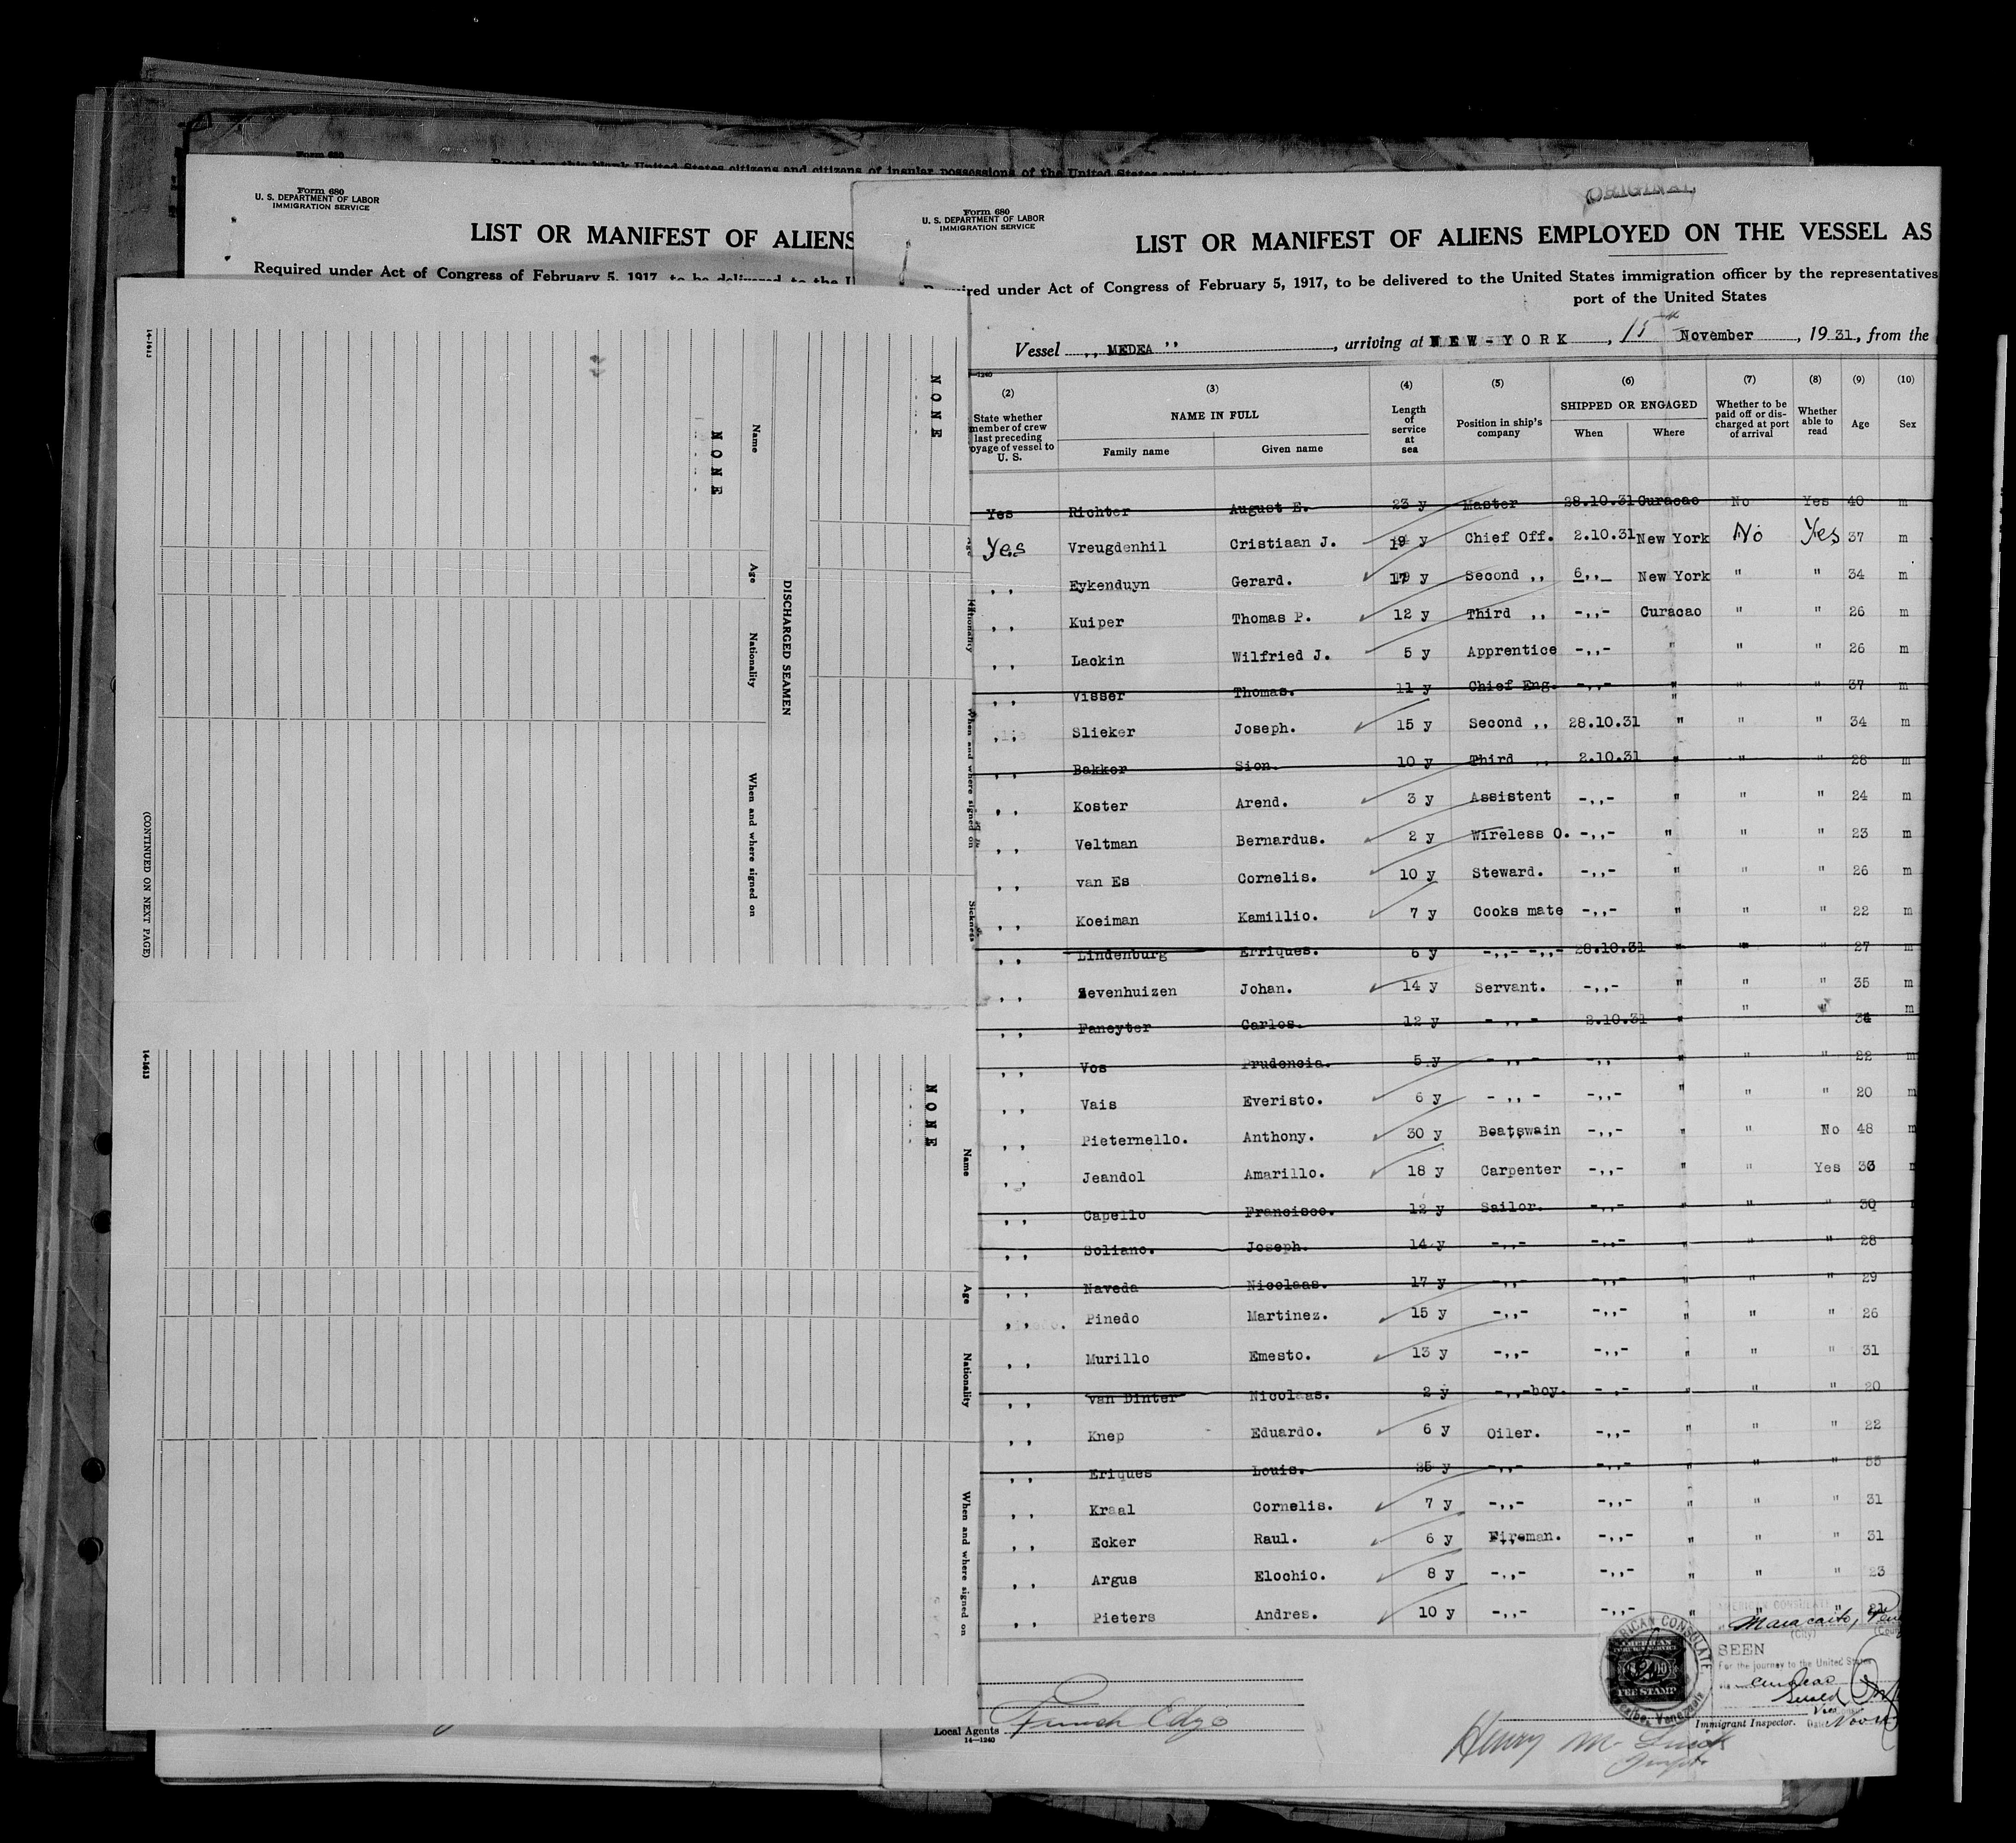 Form 680
Record on this blank United States citizens and citizens of insular possessions of the United States
Form 680
U. S. DEPARTMENT OF LABOR
IMMIGRATION SERVICE
LIST OR MANIFEST OF ALIENS
Required under Act of Congress of February 5, 1917, to be delivered to the U
14-1613
NONE
NONE
Name
Age
Nationality
When and where signed on
DISCHARGED SEAMEN
Age
Nationality
When and where signed on
Sickness
(CONTINUED ON NEXT PAGE)
14-1613
NONE
Name
Age
Nationality
When and where signed on
ORIGINAL
Form 680
U. S. DEPARTMENT OF LABOR
IMMIGRATION SERVICE
LIST OR MANIFEST OF ALIENS EMPLOYED ON THE VESSEL AS
Required under Act of Congress of February 5, 1917, to be delivered to the United States immigration officer by the representatives
port of the United States
Vessel ,, MEDEA '' , arriving at NEW-YORK , 15th November , 19 31, from the
14-1240
(2) (3) (4) (5) (6) (7) (8) (9) (10)
State whether member of crew last preceding voyage of vessel to U. S.
NAME IN FULL
Family name Given name
Length of service at sea
Position in ship's company
SHIPPED OR ENGAGED
When Where
Whether to be paid off or discharged at port of arrival
Whether able to read
Age
Sex
Yes Richter August E. 23 y Master 28.10.31 Curacao No Yes 40 m
Yes Vreugdenhil Cristiaan J. 19 y Chief Off. 2.10.31 New York No Yes 37 m
,, Eykenduyn Gerard. 17 y Second ,, 6,,_ New York " " 34 m
,, Kuiper Thomas P. 12 y Third ,, -,,- Curacao " " 26 m
,, Lackin Wilfried J. 5 y Apprentice -,,- " " " 26 m
,, Visser Thomas. 11 y Chief Eng. -,,- " " " 37 m
,, Slieker Joseph. 15 y Second ,, 28.10.31 " " " 34 m
,, Bakker Sion. 10 y Third ,, 2.10.31 " " " 28 m
,, Koster Arend. 3 y Assistent -,,- " " " 24 m
,, Veltman Bernardus. 2 y Wireless O. -,,- " " " 23 m
,, van Es Cornelis. 10 y Steward. -,,- " " " 26 m
,, Koeiman Kamillio. 7 y Cooks mate -,,- " " " 22 m
,, Lindenburg Erriques. 6 y -,,- -,,- 28.10.31 " " " 27 m
,, Zevenhuizen Johan. 14 y Servant. -,,- " " " 35 m
,, Faneyter Carlos. 12 y - ,, - 2.10.31 " " " 34 m
,, Vos Prudencia. 5 y - ,, - -,,- " " " 22 m
,, Vais Everisto. 6 y - ,, - -,,- " " " 20 m
,, Pieternello. Anthony. 30 y Boatswain -,,- " " No 48 m
,, Jeandol Amarillo. 18 y Carpenter -,,- " " Yes 36
,, Capello Francisco. 12 y Sailor. -,,- " " " 30
,, Soliano. Joseph. 14 y -,,- -,,- " " " 28
,, Naveda Nicolaas. 17 y -,,- -,,- " " " 29
,, Pinedo Martinez. 15 y -,,- -,,- " " " 26
,, Murillo Emesto. 13 y -,,- -,,- " " " 31
,, van Dinter Nicolaas. 2 y -,,-boy. -,,- " " " 20
,, Knep Eduardo. 6 y Oiler. -,,- " " " 22
,, Eriques Louis. 25 y -,,- -,,- " " " 55
,, Kraal Cornelis. 7 y -,,- -,,- " " " 31
,, Ecker Raul. 6 y Fireman. -,,- " " " 31
,, Argus Elochio. 8 y -,,- -,,- " " " 23
,, Pieters Andres. 10 y -,,- -,,- " " " 21
AMERICAN CONSULATE
Maracaibo, Ven
(City)
SEEN
For the journey to the United States
via Curacao
AMERICAN CONSULATE
Maracaibo, Venezuela
AMERICAN
FOREIGN SERVICE
FEE STAMP
Local Agents Funch Edye
14-1240
Immigrant Inspector.
Henry M.